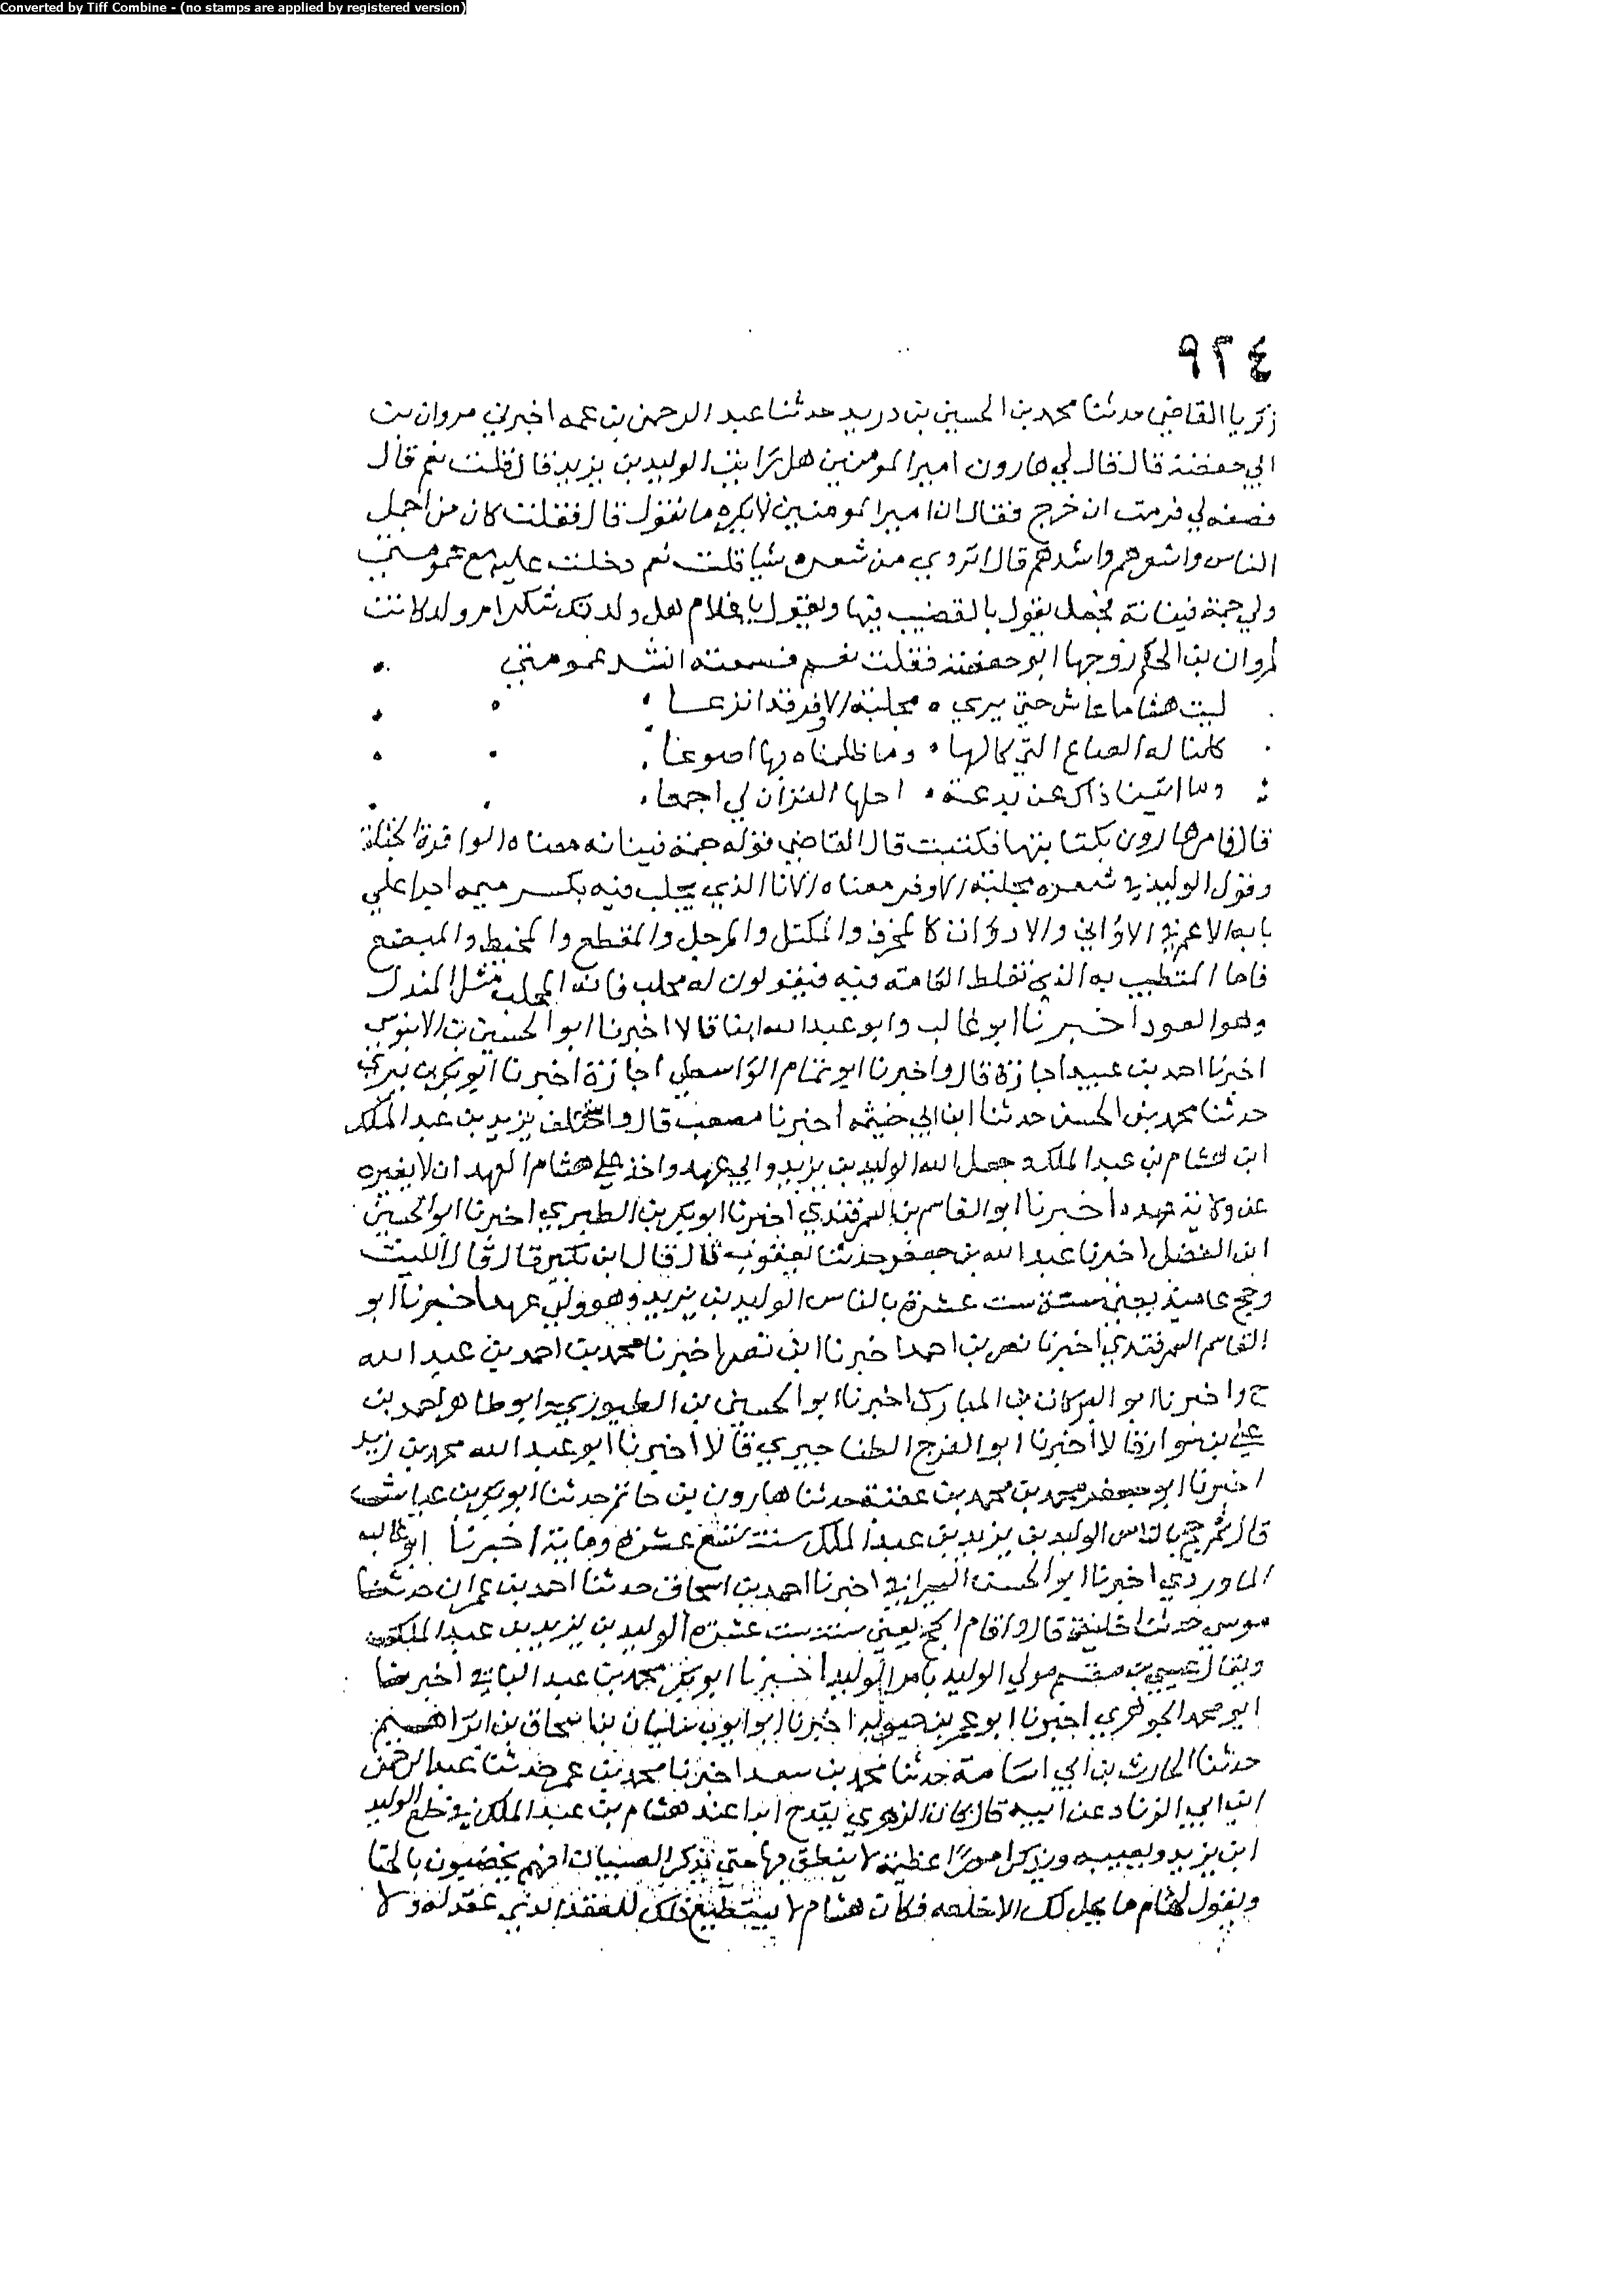 Converted by Tiff Combine - (no stamps are applied by registered version)
٩٢٤
زكريا القاضي حدثنا محمد بن الحسين بن دريد حدثنا عبد الرحمن بن عمه اخبرني مروان بن
ابي حفصة قال قال لي هارون امير المومنين هل رايت الوليد بن يزيد قال قلت نعم قال
فصفه لي فرمت ان خرج فقال ان امير المومنين لا يكره ما تقول قال فقلت كان من اجمل
الناس واشعرهم واشدهم قال اتروي من شعره شيا قلت نعم دخلت عليه مع عمومتي
ولي جمة فينانة فجعل يقول بالقضيب فيها ويقول يا غلام هل ولدتك شكر ام ولد كانت
لمروان بن الحكم زوجها ابو حفصة فقلت نعم فسمعته انشد عمومتي
ليت هشاما عاش حتى يرى ٠ محلبه الاوفر قد انزعا
كلنا له الصاع التي كالها ٠ وما ظلمناه بها اصوعا
وما اتينا ذاك عن بدعة ٠ احلها القران لي اجمعا
قال فامر هارون بكتابتها فكتبت قال القاضي قوله جمة فينانه معناه الوافرة
وقول الوليد في شعره محلبه الاوفر معناه الانا الذي يحلب فيه بكسر ميمه اجرا على
بابه الاعم في الاواني والادوات كالمخرف والمكتل والمرجل والمقطع والمخيط والمبضع
فاما المتطيب به الذي تغلط العامة فيه فيقولون له محلب فانه المحلب مثل المندل
وهو العود اخبرنا ابو غالب وابو عبد الله ابنا قالا اخبرنا ابو الحسين بن الابنوسي
اخبرنا احمد بن عبيد اجازة قال واخبرنا ابو تمام الواسطي اجازة اخبرنا ابو بكر بن بيري
حدثنا محمد بن الحسن حدثنا ابن ابي خيثمه اخبرنا مصعب قال واستخلف يزيد بن عبد الملك
ابن هشام بن عبد الملك جعل الله الوليد بن يزيد والي عهد واخذ علي هشام العهد ان لا يغيره
عن ولاية عهده اخبرنا ابو القاسم بن السمرقندي اخبرنا ابو بكر بن الطبري اخبرنا ابو الحسين
ابن الفضل اخبرنا عبد الله بن جعفر حدثنا يعقوب قال قال ابن بكير قال قال الليث
وحج عاميذ يعني سنة ست عشرة بالناس الوليد بن يزيد وهو ولي عهد اخبرنا ابو
القاسم السمرقندي اخبرنا نصر بن احمد اخبرنا ابن نصر اخبرنا محمد بن احمد بن عبد الله
ح واخبرنا ابو البركات بن المبارك اخبرنا ابو الحسين بن الطيوري وابو طاهر احمد بن
علي بن سوار قالا اخبرنا ابو الفرج الطناجيري قالا اخبرنا ابو عبد الله محمد بن زيد
اخبرنا ابو جعفر محمد بن محمد بن عقبة حدثنا هارون بن حاتم حدثنا ابو بكر بن عياش
قال ثم حج بالناس الوليد بن يزيد بن عبد الملك سنة تسع عشرة وماية اخبرنا ابو غالب
الماوردي اخبرنا ابو الحسن السيرافي اخبرنا احمد بن اسحاق حدثنا احمد بن عمران حدثنا
موسى حدثنا خليفة قال واقام الحج يعني سنة ست عشرة الوليد بن يزيد بن عبد الملك
ويقال عيسى بن مقسم مولى الوليد بامر الوليد اخبرنا ابو بكر محمد بن عبد الباقي اخبرنا
ابو محمد الجوهري اخبرنا ابو عمر بن حيويه اخبرنا ابو ايوب سليمان بن اسحاق بن ابراهيم
حدثنا الحارث بن ابي اسامة حدثنا محمد بن سعد اخبرنا محمد بن عمر حدثنا عبد الرحمن
ابن ابي الزناد عن ابيه قال كان الزهري يقدح ابدا عند هشام بن عبد الملك في خلع الوليد
ابن يزيد ويعيبه ويذكر امورا عظيمة لا ينطق بها حتى يذكر الصبيان انهم يخضبون بالحنا
ويقول لهشام ما يحل لك الا خلعه فكان هشام لا يستطيع ذلك للعقد الذي عقد له ولا